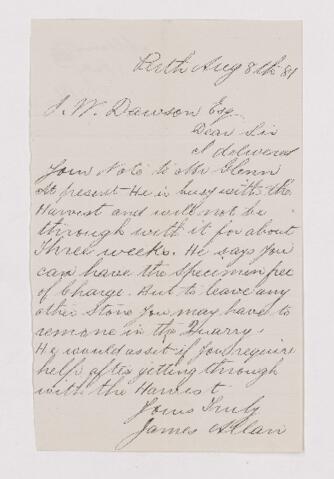 Perth Aug 8th 81
J. W. Dawson Esq
Dear Sir
I delivered
Your Note to Mr Glenn
At present He is busy with the
Harvest and will not be
through with it for about
Three weeks. He says you
can have the Specimen free
of Charge. But to leave any
other Stone you may have to
remove in the Quarry.
He would assist if you require
help after getting through
with the Harvest
Yours Truly
James Allan